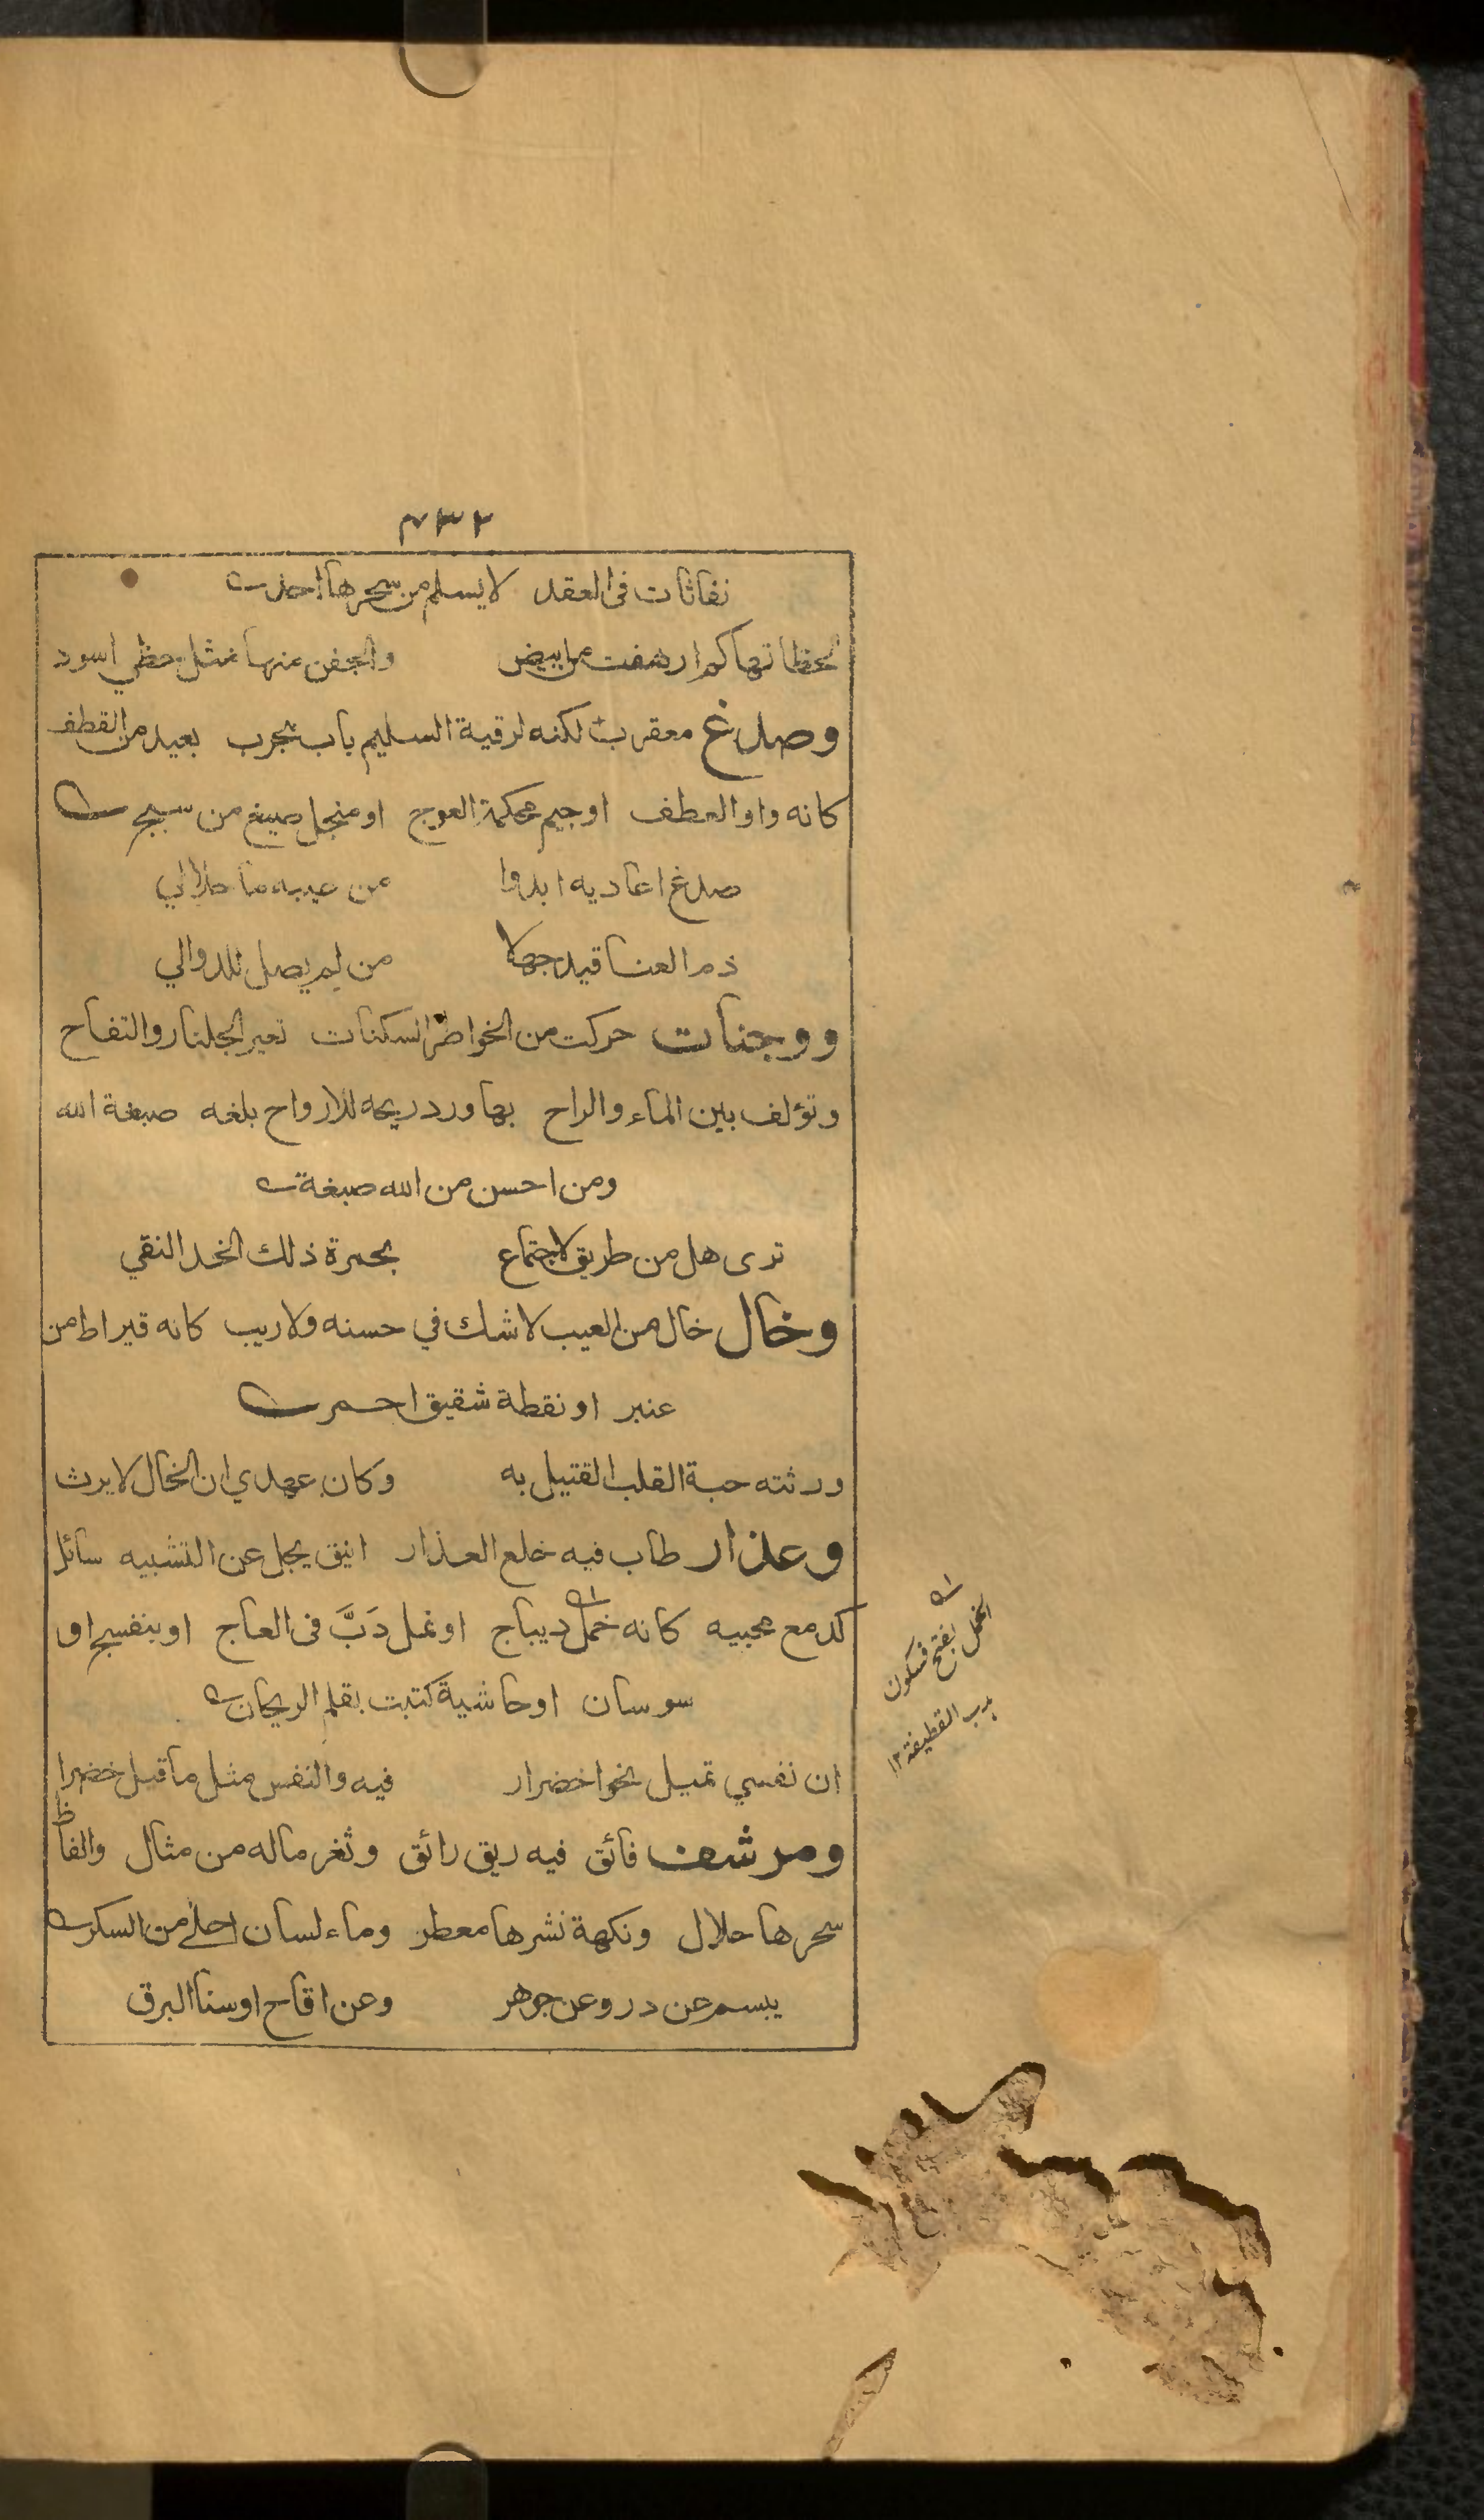 ٢٣٢
نفاثات فى العقد لا يسلم من سحرها احد
لحظاتها كم ارهفت من ابيض والجفن منها مثل حظي اسود
وصدغ معقرب لكنه لرقية السليم باب مجرب بعيد من القطف
كانه واو العطف او جيم محكمة العوج او منجل صيغ من سبج
صدغ اعاديه ابدوا من عيبه ما حلا لي
ذم العناقيد جهلا من لم يصل للدوالي
ووجنات حركت من الخواطر السكنات تعير الجلنار والتفاح
وتؤلف بين الماء والراح بها ورد ريحه للارواح بلغه صبغة الله
ومن احسن من الله صبغة
ترى هل من طريق لاجتماع بحمرة ذلك الخد النقي
وخال خال من العيب لا شك في حسنه ولا ريب كانه قيراط من
عنبر او نقطة شقيق احمر
ورثته حبة القلب القتيل به وكان عهدي ان الخال لا يرث
وعذار طاب فيه خلع العذار انيق يجل عن التشبيه سائل
كدمع محبيه كانه خمل ديباج او نمل دَبَّ فى العاج او بنفسج او
سوسان او حاشية كتبت بقلم الريحان
ان نفسي تميل نحو اخضرار فيه والنفس مثل ما قيل خضرا
ومرشف فائق فيه ريق رائق وثغر ماله من مثال والفاظ
سحرها حلال ونكهة نشرها معطر وماء لسان احلى من السكر
يبسم عن در وعن جوهر وعن اقاح او سنا البرق
الخمل بفتح فسكون
هدب القطيفة ١٢